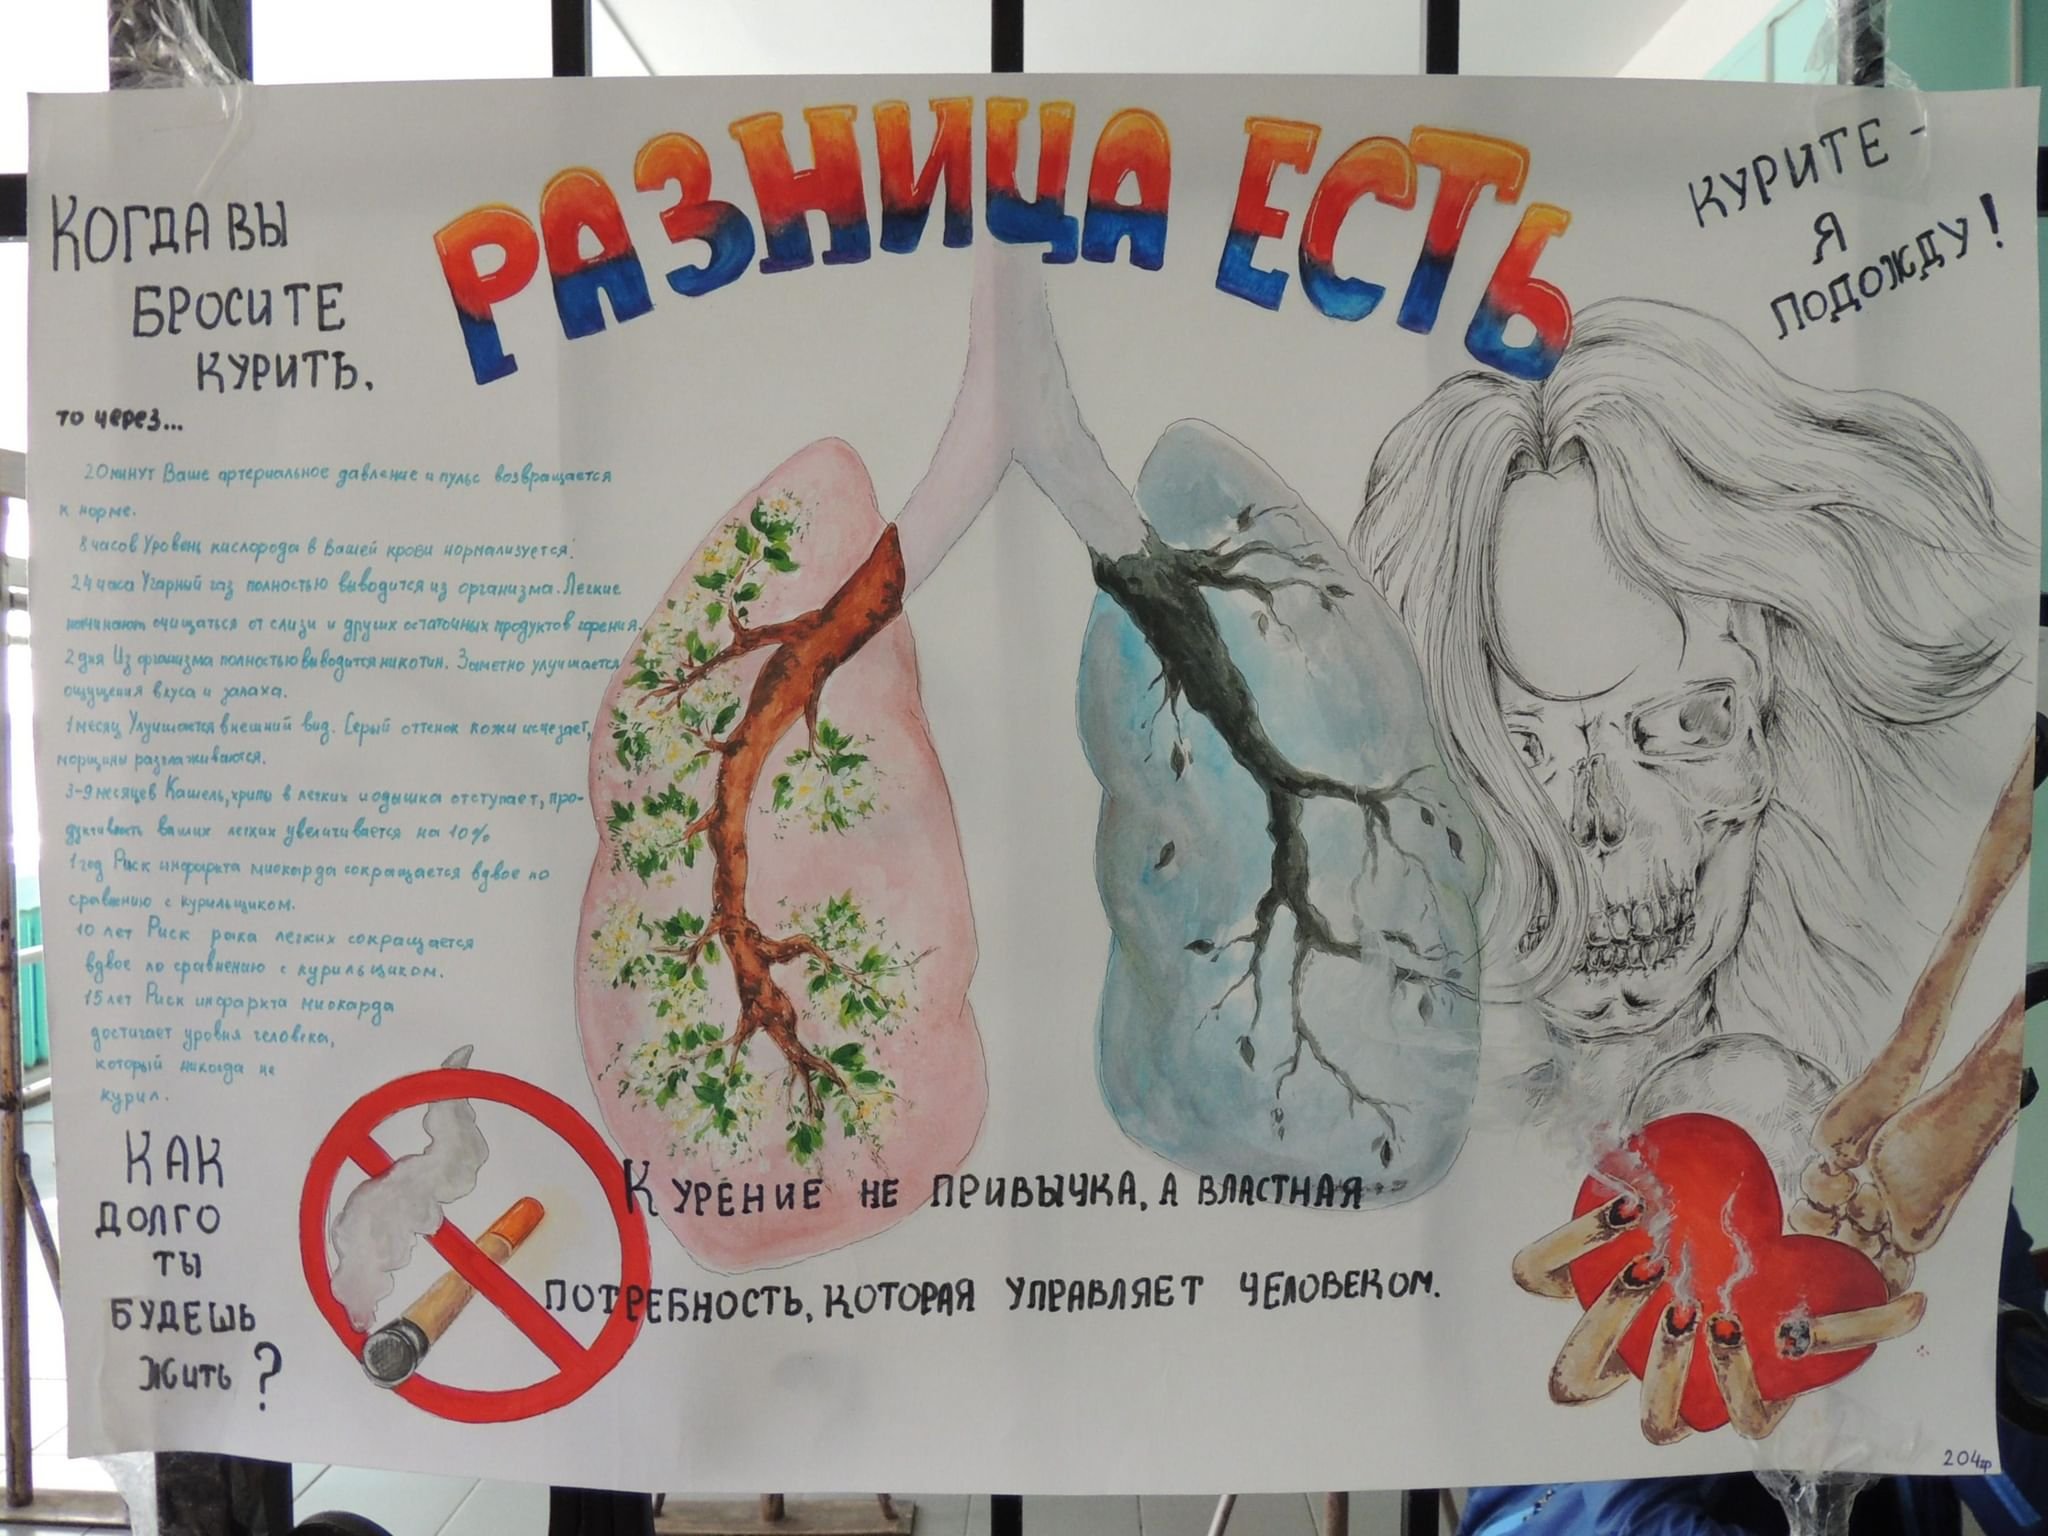 РАЗНИЦА ЕСТЬ
КОГДА ВЫ
БРОСИТЕ
КУРИТЬ.
то через...
20 минут Ваше артериальное давление и пульс возвращается
к норме.
8 часов Уровень кислорода в Вашей крови нормализуется.
24 часа Угарный газ полностью выводится из организма. Легкие
начинают очищаться от слизи и других остаточных продуктов горения.
2 дня Из организма полностью выводится никотин. Заметно улучшается
ощущения вкуса и запаха.
1 месяц Улучшается внешний вид. Серый оттенок кожи исчезает,
морщины разглаживаются.
3-9 месяцев Кашель, хрипы в легких и одышка отступает, про-
дуктивность ваших легких увеличивается на 10%
1 год Риск инфаркта миокарда сокращается вдвое по
сравнению с курильщиком.
10 лет Риск рака легких сокращается
вдвое по сравнению с курильщиком.
15 лет Риск инфаркта миокарда
достигает уровня человека,
который никогда не
курил.
КАК
ДОЛГО
ТЫ
БУДЕШЬ
ЖИТЬ?
КУРИТЕ -
Я
ПОДОЖДУ!
КУРЕНИЕ НЕ ПРИВЫЧКА, А ВЛАСТНАЯ
ПОТРЕБНОСТЬ, КОТОРАЯ УПРАВЛЯЕТ ЧЕЛОВЕКОМ.
204гр